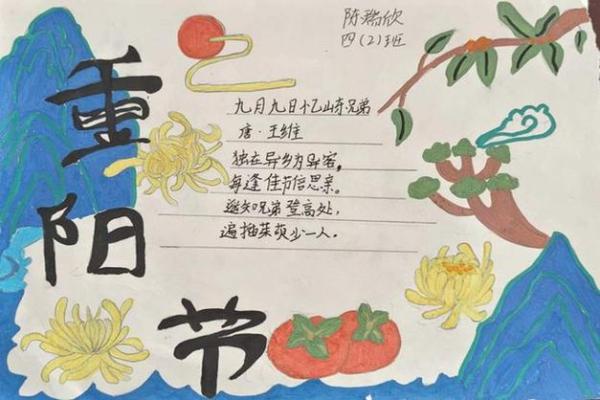 陈瑞欣
四(2)班
重阳节
九月九日忆山东兄弟
唐·王维
独在异乡为异客，
每逢佳节倍思亲。
遥知兄弟登高处，
遍插茱萸少一人。